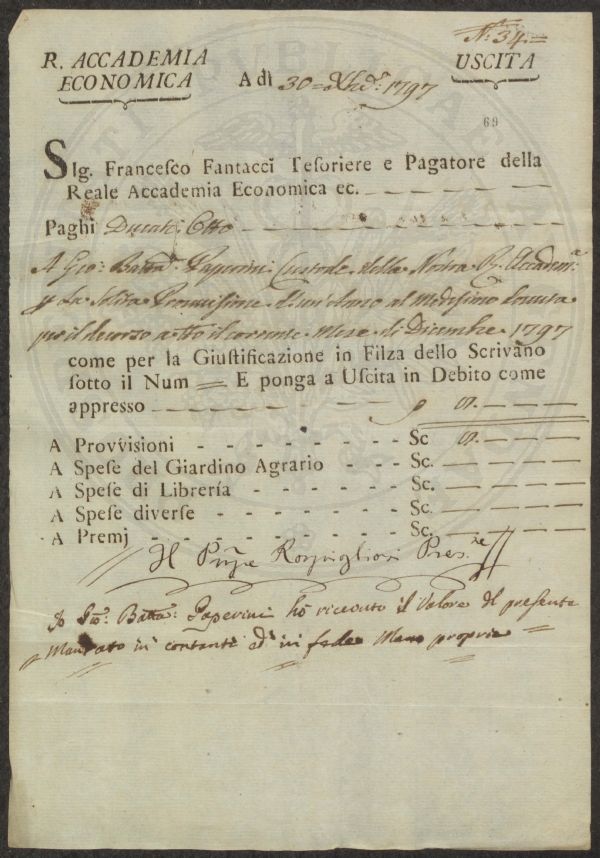 N.° 34.
R. ACCADEMIA
ECONOMICA
A dì 30 = Xbre. 1797
USCITA
69
SIg. Francesco Fantacci Tesoriere e Pagatore della
Reale Accademia Economica ec.
Paghi Ducati Otto
A Gio: Batta: Paperini Custode della Nostra R. Accadem.a
p La Solita Provvisione d'un' al Medesimo dovuta
per il decorso a tto il corrente Mese di Dicembre 1797
come per la Giustificazione in Filza dello Scrivano
sotto il Num = E ponga a Uscita in Debito come
appresso 8.
A Provvisioni - - - - - - - - - - Sc 8.
A Spese del Giardino Agrario - - - Sc.
A Spese di Librería - - - - - - - Sc.
A Spese diverse - - - - - - - - Sc.
A Premj - - - - - - - - - - Sc.
Il Rospigliosi Pres.te
Io Gio: Batta: Paperini hò ricevuto il Valore del presente
Mandato in contanti ed in fede Mano propria